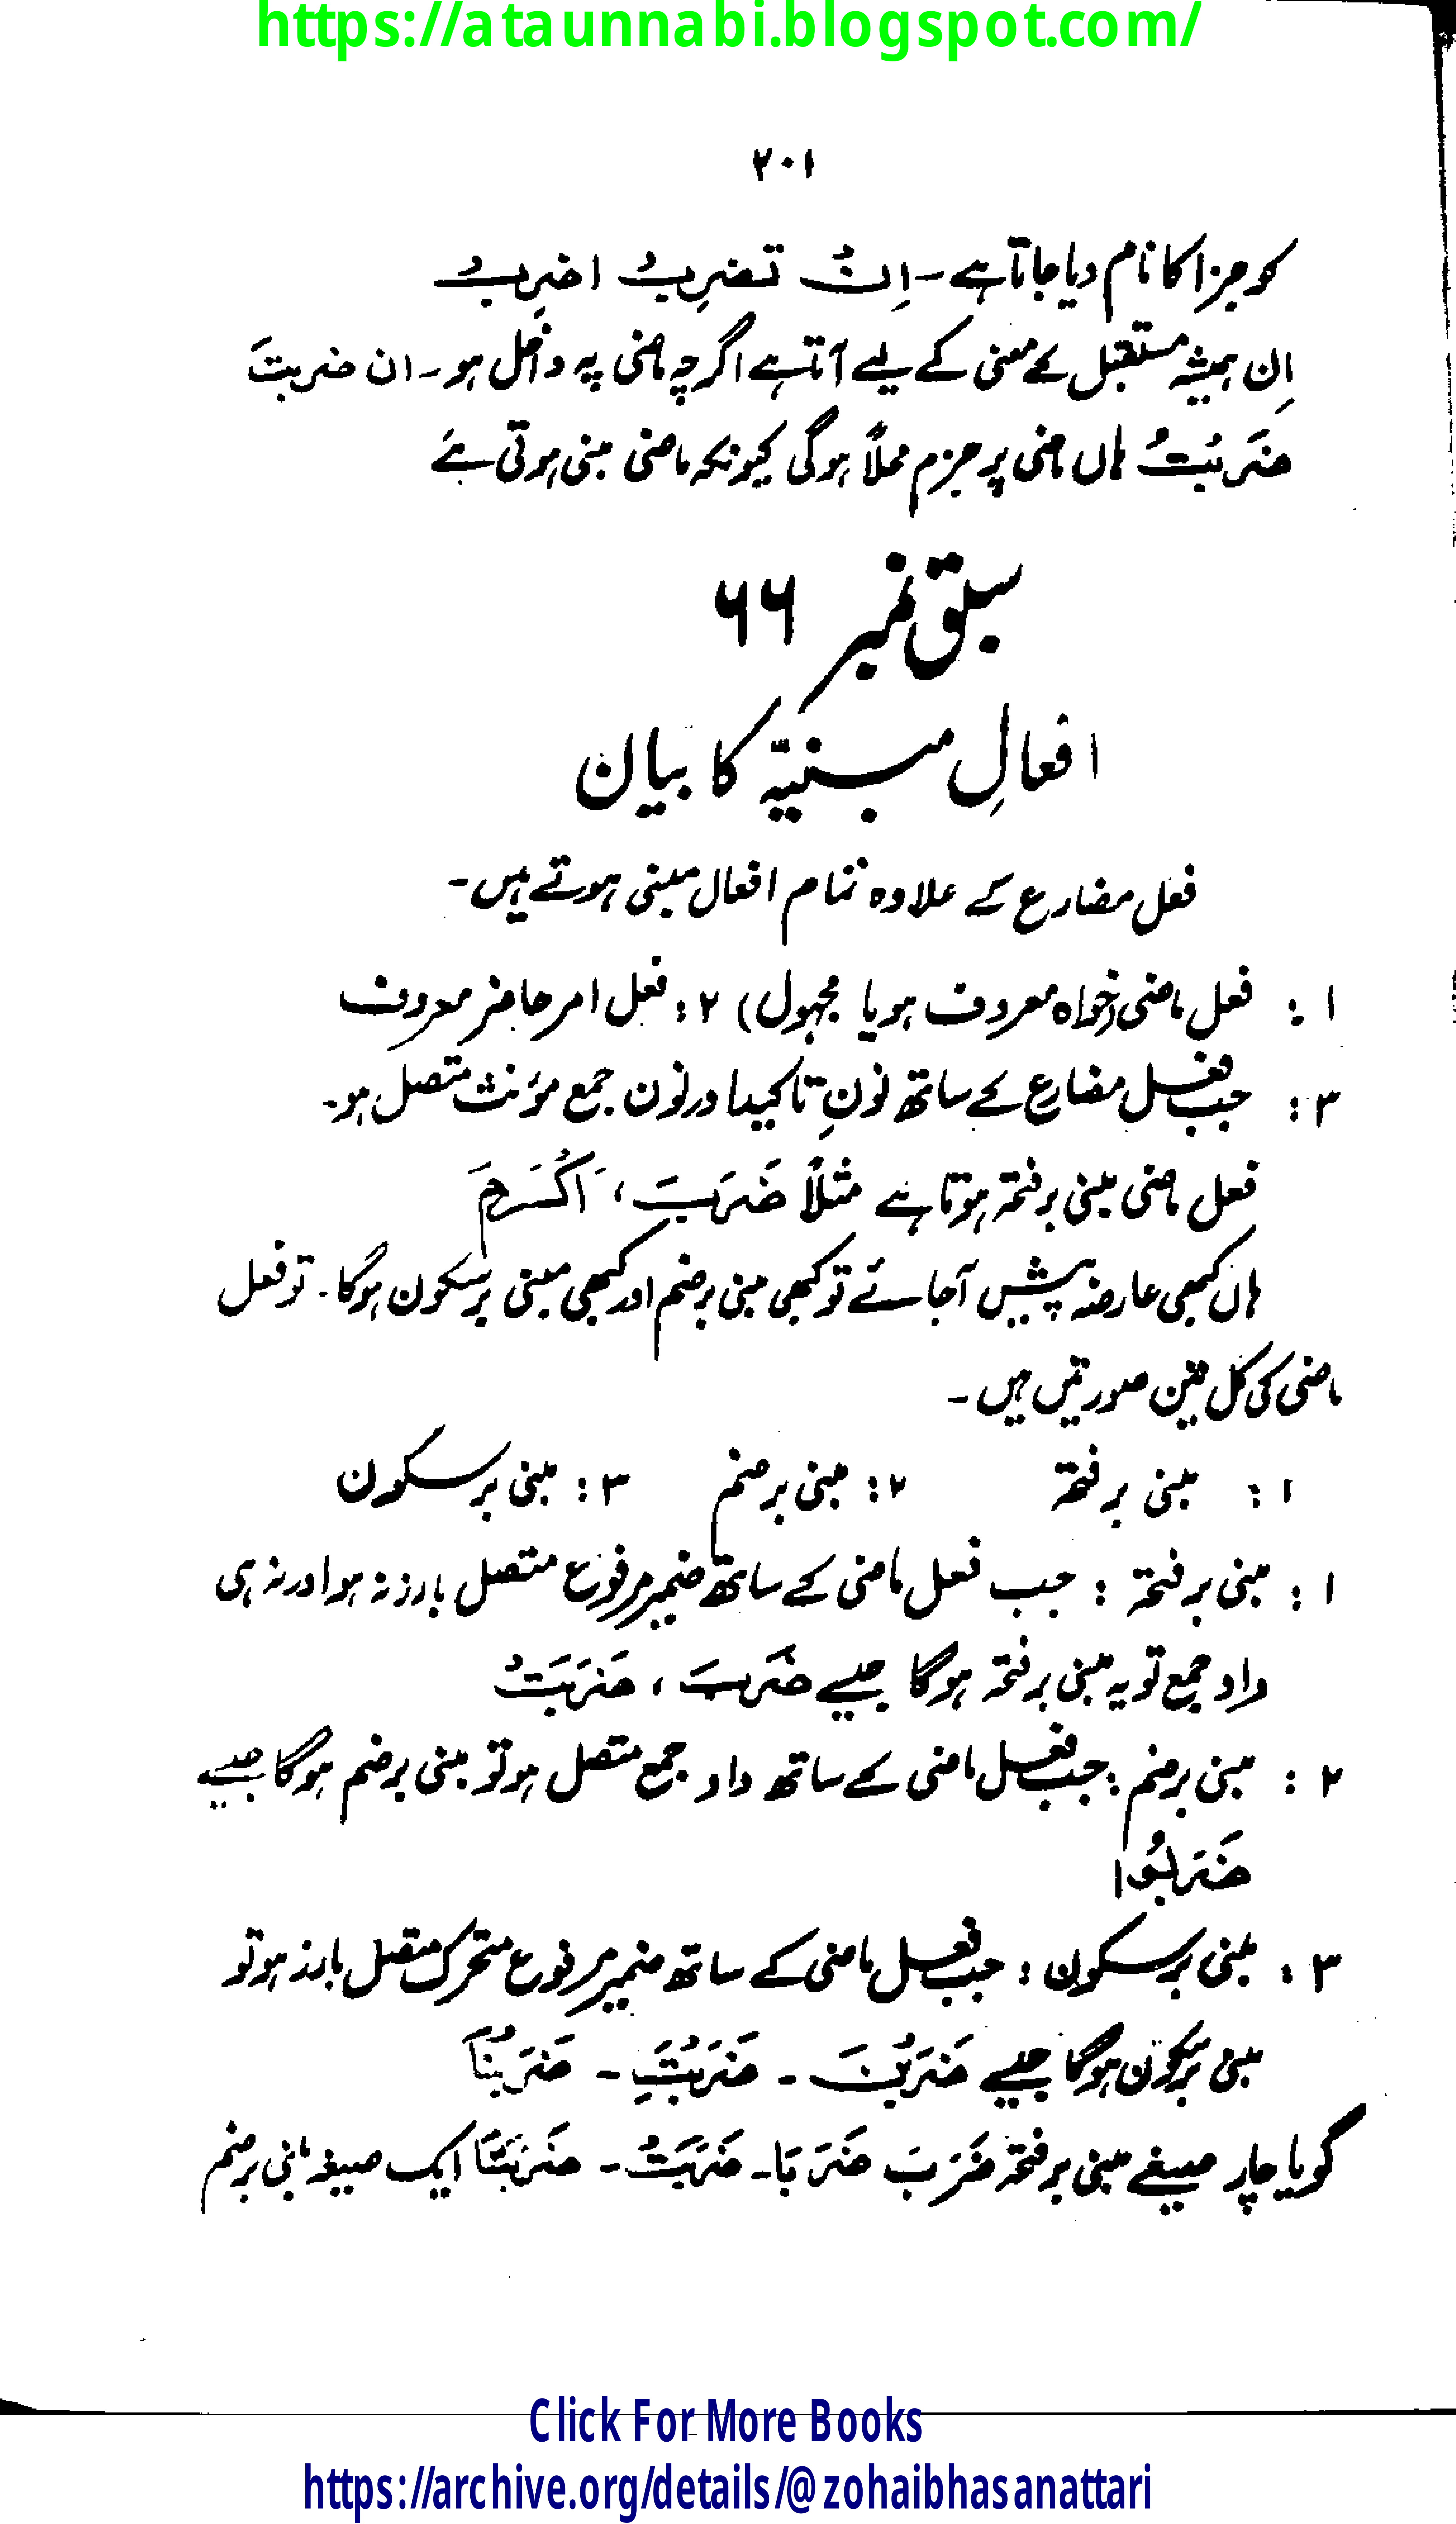 https://ataunnabi.blogspot.com/
۲۰۱
کو جزا کا نام دیا جاتا ہے - اِنْ تضرِبْ اضرِبْ
اِن ہمیشہ مستقبل کے معنی کے لیے آتا ہے اگرچہ ماضی پہ داخل ہو - ان ضربتَ
ضَرَبْتُ ہاں ماضی پر جزم محلاً ہوگی کیونکہ ماضی مبنی ہوتی ہے
سبق نمبر ۶۶
افعالِ مبنیّہ کا بیان
فعل مضارع کے علاوہ تمام افعال مبنی ہوتے ہیں -
۱ : فعل ماضی (خواہ معروف ہو یا مجہول) ۲ : فعل امر حاضر معروف
۳ : جب فعل مضارع کے ساتھ نونِ تاکید اور نون جمع مؤنث متصل ہو -
فعل ماضی مبنی بر فتحہ ہوتا ہے مثلاً ضَرَبَ ، اَکْرَمَ
ہاں کبھی عارضہ پیش آجائے تو کبھی مبنی بر ضم اور کبھی مبنی بر سکون ہوگا - تو فعل
ماضی کی کل تین صورتیں ہیں -
۱ : مبنی بر فتحہ ۲ : مبنی بر ضم ۳ : مبنی بر سکون
۱ : مبنی بر فتحہ : جب فعل ماضی کے ساتھ ضمیر مرفوع متصل بارز نہ ہو اور نہ ہی
واو جمع تو یہ مبنی بر فتحہ ہوگا جیسے ضَرَبَ ، ضَرَبَتْ
۲ : مبنی بر ضم : جب فعل ماضی کے ساتھ واو جمع متصل ہو تو مبنی بر ضم ہوگا جیسے
ضَرَبُوا
۳ : مبنی بر سکون : جب فعل ماضی کے ساتھ ضمیر مرفوع متحرک متصل بارز ہو تو
مبنی بر سکون ہوگا جیسے ضَرَبْنَ - ضَرَبْتَ - ضَرَبْنَا
گویا چار صیغے مبنی بر فتحہ ضَرَبَ ضَرَبَا - ضَرَبَتْ - ضَرَبَتَا ایک صیغہ مبنی بر ضم
Click For More Books
https://archive.org/details/@zohaibhasanattari